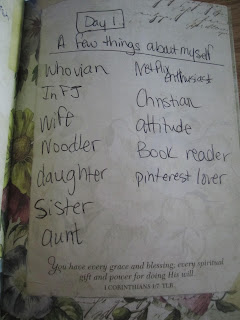 Day 1
A few things about myself
Whovian
INFJ
Wife
Noodler
daughter
Sister
aunt
Netflix
enthusiast
Christian
attitude
Book reader
pinterest lover
You have every grace and blessing; every spiritual
gift and power for doing His will
I CORINTHIANS 1:7 TLB